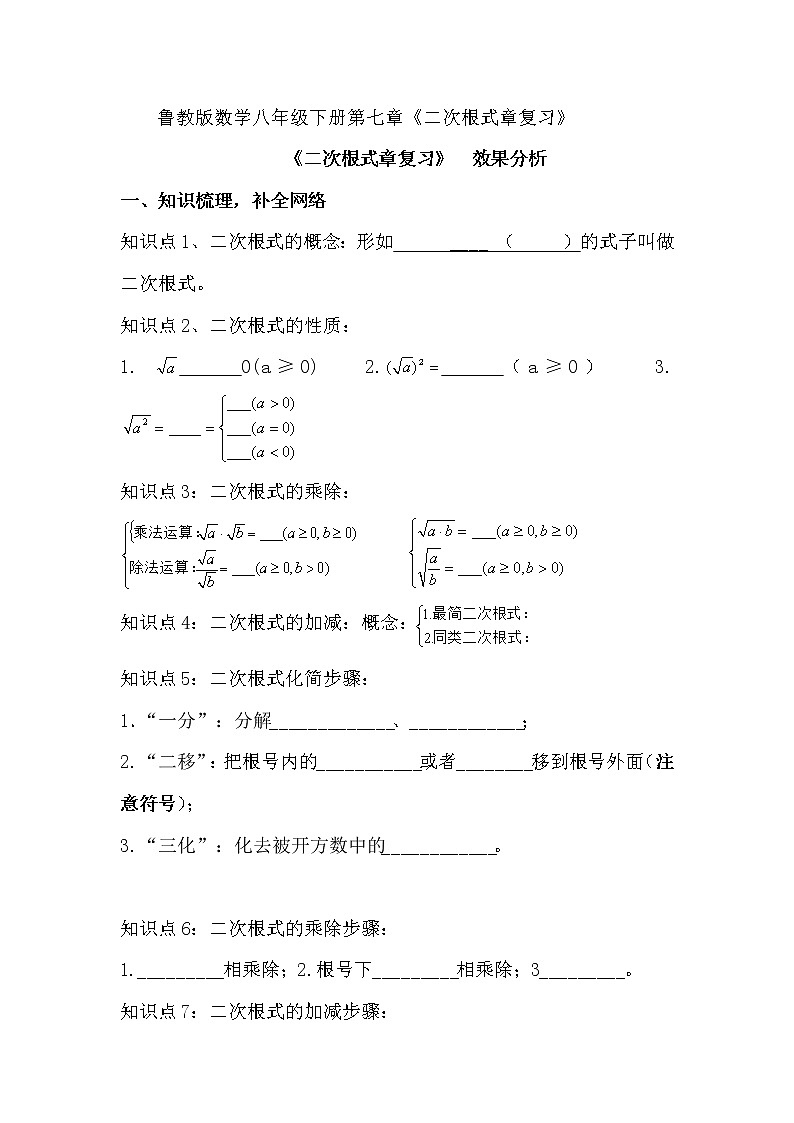 鲁教版数学八年级下册第七章《二次根式章复习》
《二次根式章复习》 效果分析
一、知识梳理，补全网络
知识点1、二次根式的概念：形如__________（_____）的式子叫做
二次根式。
知识点2、二次根式的性质：
1. √a______0(a≥0) 2.(√a)²=______（a≥0） 3.
√a²=____={___(a>0) ___(a=0) ___(a<0)
知识点3：二次根式的乘除：
{乘法运算:√a·√b=___(a≥0,b≥0) {√a·b=___(a≥0,b≥0)
除法运算:√a/√b=___(a≥0,b>0) √(a/b)=___(a≥0,b>0)
知识点4：二次根式的加减：概念：{1.最简二次根式：
2.同类二次根式：
知识点5：二次根式化简步骤：
1.“一分”：分解_____________、____________；
2.“二移”：把根号内的___________或者________移到根号外面（注
意符号）；
3.“三化”：化去被开方数中的____________。
知识点6：二次根式的乘除步骤：
1._________相乘除；2.根号下_________相乘除；3_________。
知识点7：二次根式的加减步骤：